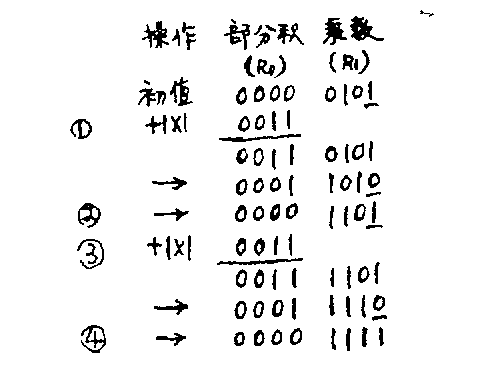 操作 部分积 乘数
(R₀) (R₁)
初值 0000 0101
① +|x| 0011
0011 0101
→ 0001 1010
② → 0000 1101
③ +|x| 0011
0011 1101
→ 0001 1110
④ → 0000 1111